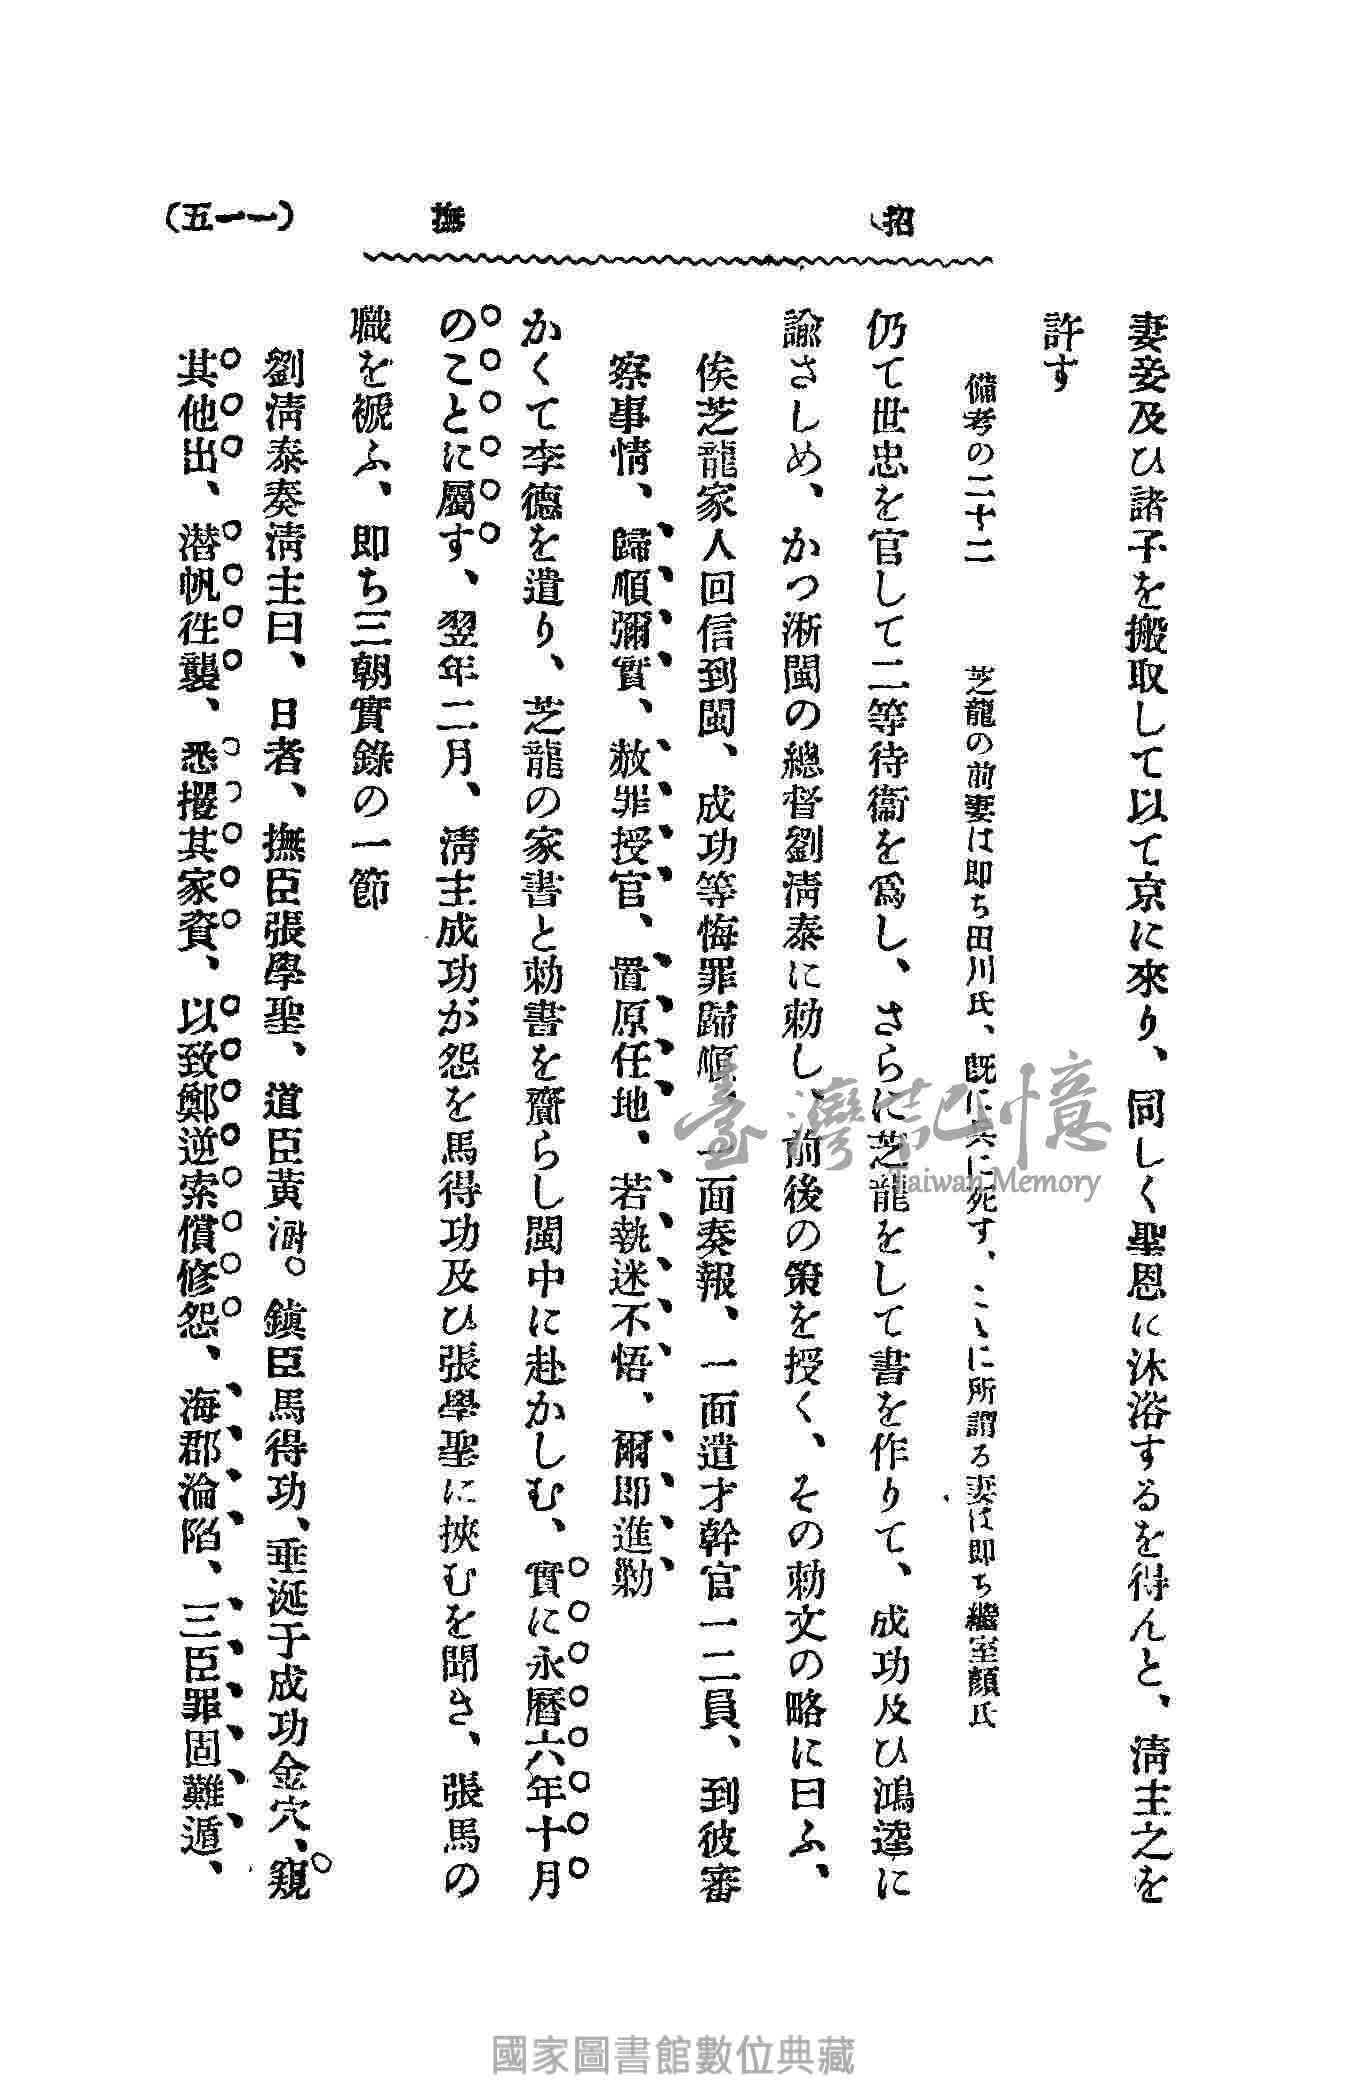 招撫
(一一五)
妻妾及ひ諸子を搬取して以て京に來り、同しく聖恩に沐浴するを得んと、淸主之を
許す
備考の二十二　芝龍の前妻は即ち田川氏、既に共に死す、こゝに所謂る妻は即ち繼室顏氏
仍て世忠を官して二等待衞を爲し、さらに芝龍をして書を作りて、成功及ひ鴻逵に
諭さしめ、かつ淅閩の總督劉淸泰に勅し、前後の策を授く、その勅文の略に曰ふ、
俟芝龍家人回信到閩、成功等悔罪歸順、一面奏報、一面遣才幹官一二員、到彼審
察事情、歸順彌實、赦罪授官、置原任地、若執迷不悟、爾即進勦
かくて李德を遣り、芝龍の家書と勅書を齎らし閩中に赴かしむ、實に永曆六年十月
のことに屬す、翌年二月、淸主成功が怨を馬得功及ひ張學聖に挾むを聞き、張馬の
職を褫ふ、即ち三朝實錄の一節
劉淸泰奏淸主曰、日者、撫臣張學聖、道臣黃澍。鎭臣馬得功、垂涎于成功金穴、窺
其他出、潜帆徃襲、悉攫其家資、以致鄭逆索償修怨、海郡淪陷、三臣罪固難遁、
臺灣記憶
Taiwan Memory
國家圖書館數位典藏